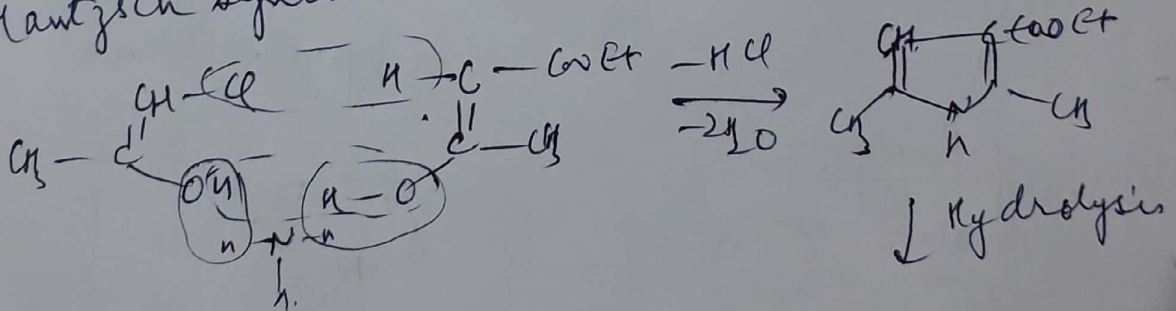 Hantzsch
CH – Cl H – C – COOEt –HCl CH C–COOEt
CH3 – C C – CH3 –2H2O CH3 N CH3
OH H – O H
H – N – H ↓ Hydrolysis
H